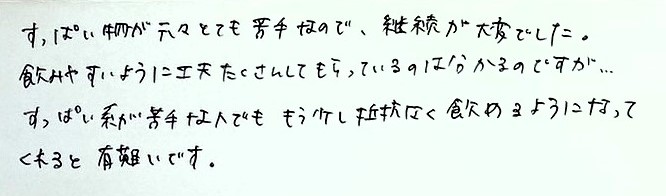 すっぱい物が元々とても苦手なので、継続が大変でした。
飲みやすいように工夫たくさんしてもらっているのは分かるのですが…
すっぱい系が苦手な人でも もう少し抵抗なく飲めるようになって
くれると有難いです。